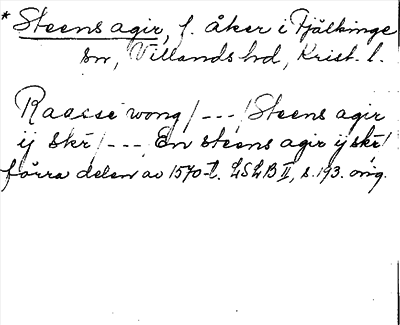 * Steens agir, f. åker i Fjälkinge
sn, Villands hd, Krist. l.
Raasse wong / - - - / Steens agir
ij skr / - - - / En steens agir ij skr /
förra delen av 1570-t. LSLB II, s. 193. orig.